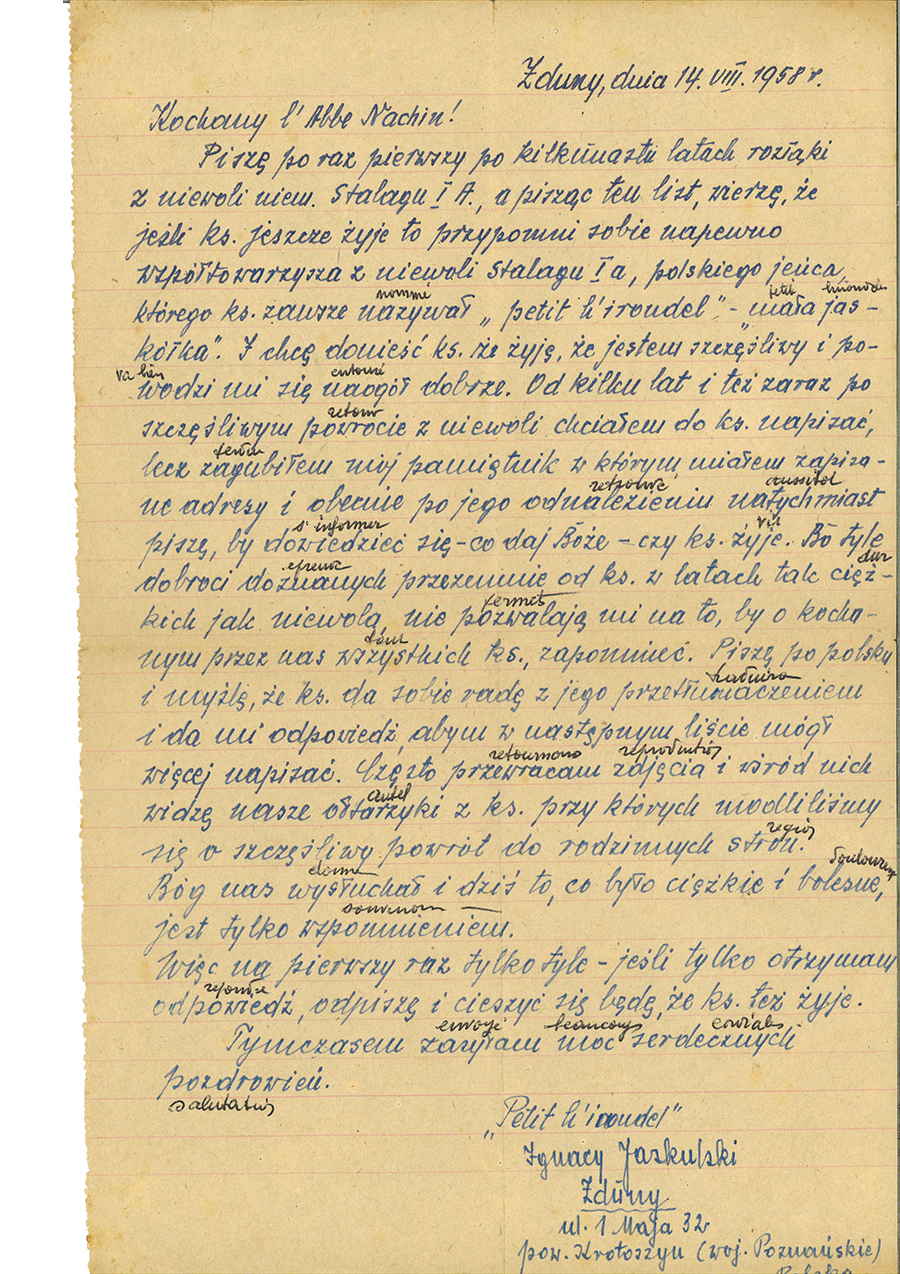 Zduny, dnia 14. VIII. 1958 r.
Kochany l' Abbe Nachin!
Piszę po raz pierwszy po kilkunastu latach rozłąki
z niewoli niem. Stalagu I A., a pisząc ten list, wierzę, że
jeśli ks. jeszcze żyje to przypomni sobie napewno
współtowarzysza z niewoli Stalagu I a, polskiego jeńca,
nommé petit hirondelle
którego ks. zawsze nazywał „petit h'irondel" - „mała jas-
kółka". I chcę donieść ks. że żyję, że jestem szczęśliwy i po-
va bien
wodzi mi się naogół dobrze. Od kilku lat i też zaraz po
retour
szczęśliwym powrocie z niewoli chciałem do ks. napisać,
lecz zagubiłem mój pamiętnik w którym miałem zapisa-
retrouvé aussitôt
ne adresy i obecnie po jego odnalezieniu natychmiast
s'informer vit
piszę, by dowiedzieć się - co daj Boże - czy ks. żyje. Bo tyle
dur
dobroci doznanych przezemnie od ks. w latach tak cięż-
permet
kich jak niewola, nie pozwalają mi na to, by o kocha-
nym przez nas wszystkich ks., zapomnieć. Piszę po polsku
i myślę, że ks. da sobie radę z jego przetłumaczeniem
i da mi odpowiedź, abym w następnym liście mógł
więcej napisać. Często przewracam zdjęcia i wśród nich
autel
widzę nasze ołtarzyki z ks. przy których modliliśmy
region
się o szczęśliwy powrót do rodzinnych stron.
Bóg nas wysłuchał i dziś to, co było ciężkie i bolesne,
jest tylko wspomnieniem.
Więc na pierwszy raz tylko tyle - jeśli tylko otrzymam
réponse
odpowiedź, odpiszę i cieszyć się będę, że ks. też żyje.
envoyé beaucoup
Tymczasem zasyłam moc serdecznych
pozdrowień.
„Petit h'irondel"
Ignacy Jaskulski
Zduny
ul. 1 Maja 32
pow. Krotoszyn (woj. Poznańskie)
Polska